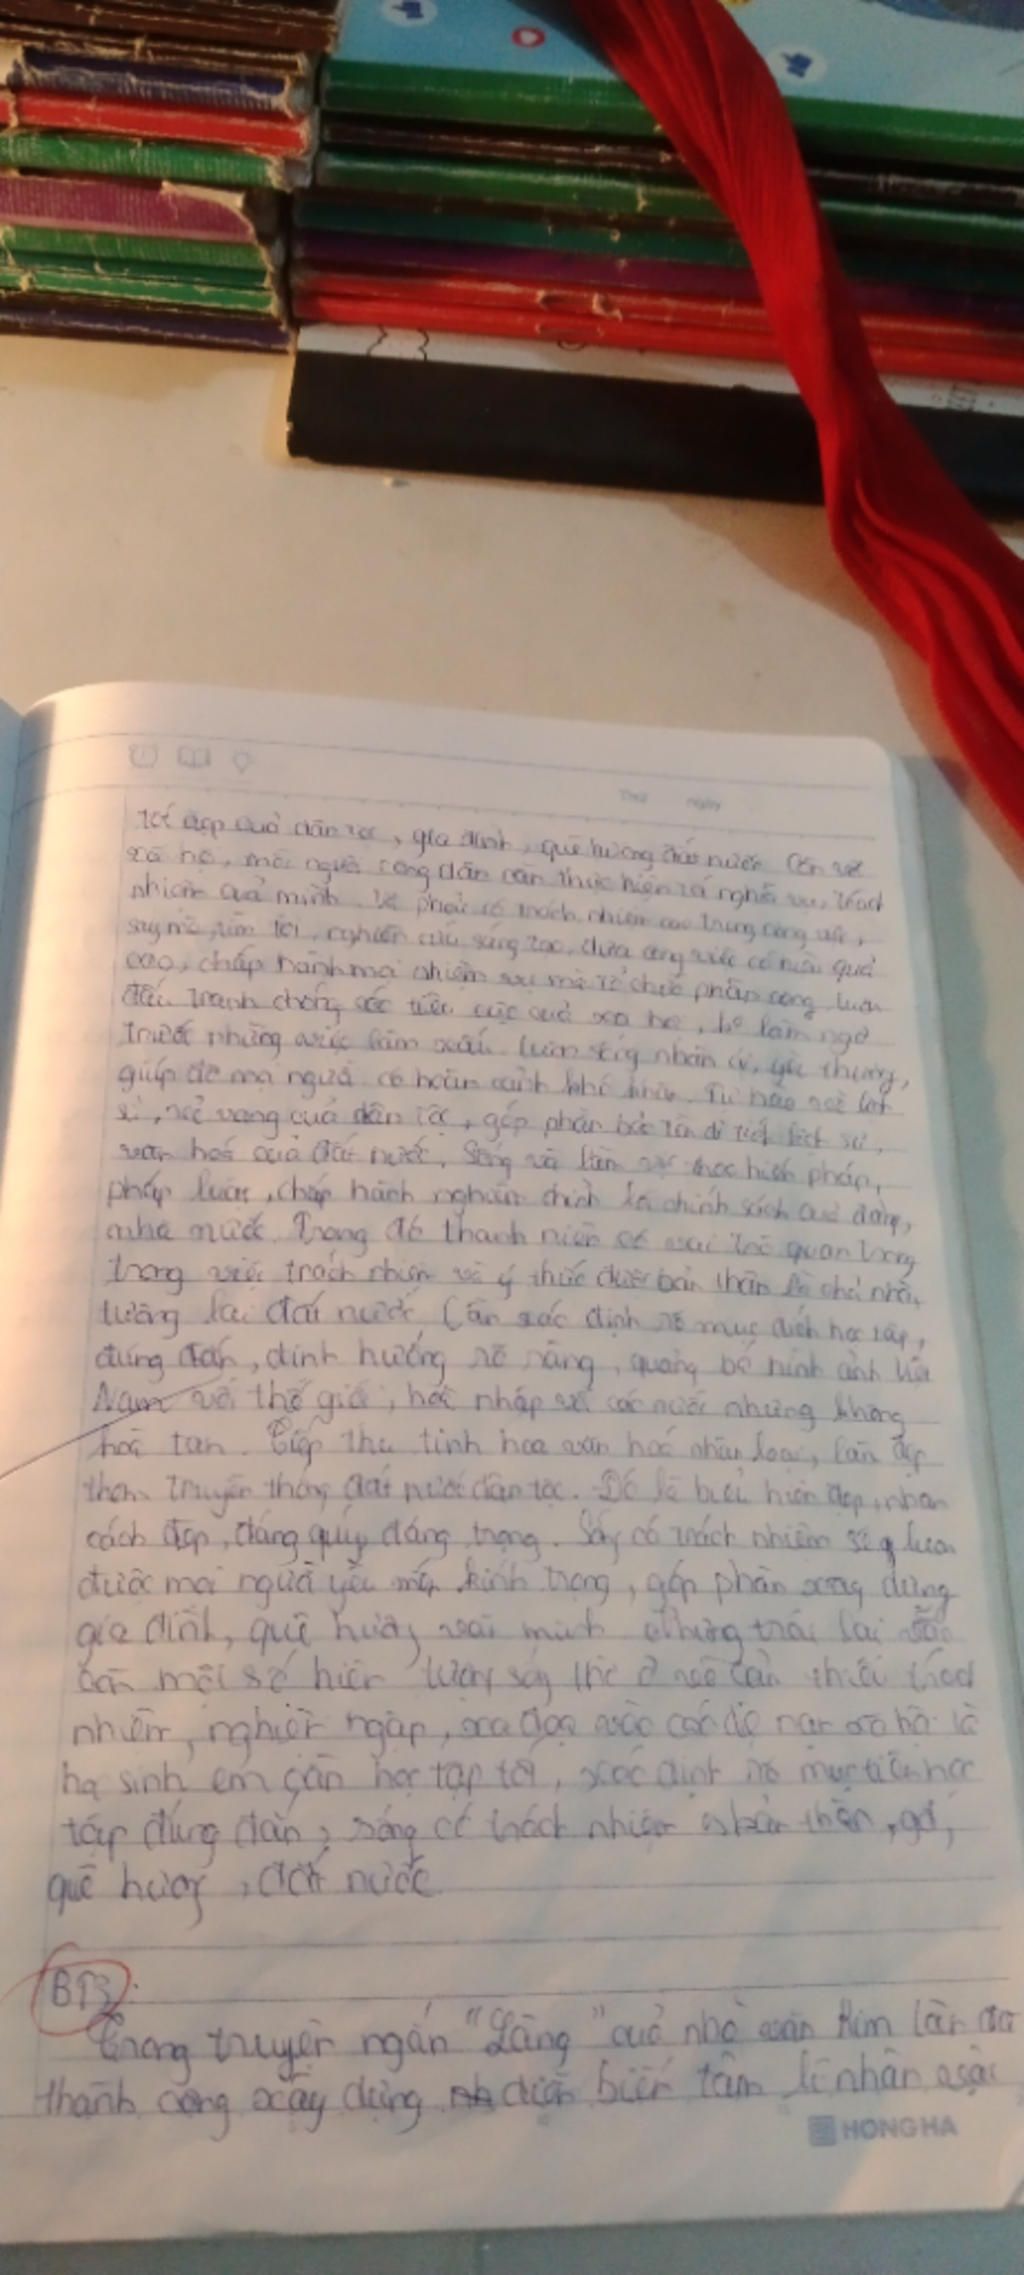 Thứ ngày
tốt đẹp quả dân tộc, gia đình, quê hương đất nước. Còn về
xã hội, mỗi người công dân cần thực hiện rõ nghĩa vụ, trách
nhiệm quả mình. phải có trách nhiệm cao trong công việc,
say mê, tìm tòi, nghiên cứu sáng tạo, đưa công việc có hiệu quả
cao, chấp hành mọi nhiệm vụ mà tổ chức phân công, luôn
đấu tranh chống các tiêu cực quả xã hội, làm ngơ
trước những việc làm xấu. Luôn sống nhân ái, yêu thương,
giúp đỡ mọi người có hoàn cảnh khó khăn. Tự hào về lịch
sử, vẻ vang quả dân tộc, góp phần bảo tồn di tích lịch sử,
văn hoá quả đất nước. Sống và làm việc theo hiến pháp,
pháp luật, chấp hành nghiêm chỉnh chính sách quả đảng,
nhà nước. Trong đó thanh niên có vai trò quan trọng
trong việc trách nhiệm và ý thức được bản thân là chủ nhân
tương lai đất nước. Cần xác định rõ mục đích học tập,
đúng đắn, định hướng rõ ràng, quảng bá hình ảnh Việt
Nam với thế giới, hoà nhập với các nước nhưng không
hoà tan. Tiếp thu tinh hoa văn hoá nhân loại, làm đẹp
thêm truyền thống đất nước dân tộc. Đó là biểu hiện đẹp, nhân
cách đẹp, đáng quý đáng trọng. Sống có trách nhiệm sẽ luôn
được mọi người yêu mến, kính trọng, góp phần xây dựng
gia đình, quê hương mình. Nhưng trái lại vẫn
còn một số hiện tượng sống thờ ơ vô cảm, thiếu trách
nhiệm, nghiện ngập, sa đoạ vào các tệ nạn xã hội. là
họ sinh em cần học tập tốt, xác định rõ mục tiêu học
tập đúng đắn, sống có trách nhiệm bản thân, gđ,
quê hương, đất nước.
BT3:
Trong truyện ngắn "Làng" quả nhà văn Kim Lân đã
thành công xây dựng diễn biến tâm lí nhân vật
HONG HA